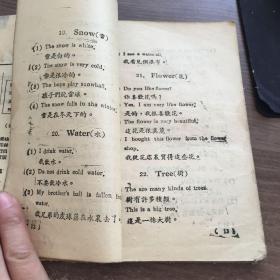 19. Snow(雪)
(1) The snow is white.
雪是白的。
(2) The snow is very cold.
雪是很冷的。
(3) The boys play snowball.
孩子們玩雪球。
(4) The snow falls in the winter.
雪是在冬天下的。
20. Water(水)
(1) I drink water.
我飲水。
(2) Do not drink cold water.
不要飲冷水。
(3) My brother's ball is fallen
water.
我兄弟的皮球落在水裏去了。
I saw a waterfall,
我看見個瀑布。
21. Flower(花)
Do you like flower?
你喜歡花嗎?
Yes, I am very like flower.
是的,我很喜歡花。
The flower is very beautiful.
這花是很美麗。
I bought this flower from the flower
shop.
我從花店裏買得這些花。
22. Tree(樹)
The are many kinds of trees.
樹有許多種類。
This is a big tree.
這是一株大樹。
( 13 )